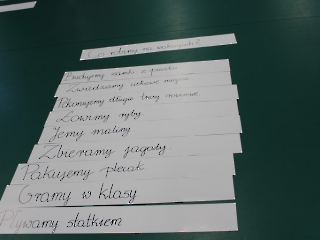 Co robimy na wakacjach?
Budujemy zamki z piasku
Zwiedzamy ciekawe miejsca
Pokonujemy długie trasy rowerowe
Łowimy ryby
Jemy maliny
Zbieramy jagody
Pakujemy plecak
Gramy w klasy
Pływamy statkiem